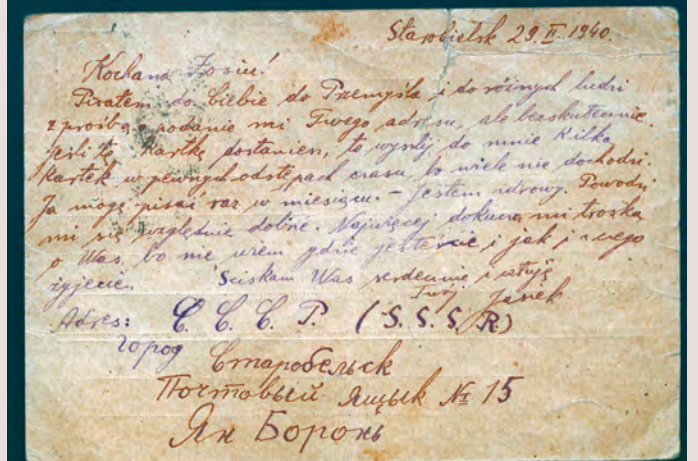 Starobielsk 29.II.1940.
Kochana Zosiu!
Pisałem do Ciebie do Przemyśla i do różnych ludzi
z prośbą o podanie mi Twego adresu, ale bezskutecznie.
Jeśli tę kartkę dostaniesz, to wyślij do mnie kilka
kartek w pewnych odstępach czasu, bo wiele nie dochodzi.
Ja mogę pisać raz w miesiącu. – Jestem zdrowy. Powodzi
mi się względnie dobrze. Najwięcej dokucza mi troska
o Was, bo nie wiem gdzie jesteście i jak i z czego
żyjecie. Ściskam Was serdecznie i całuję
Twój Janek
Adres: С. С. С. Р. (S. S. S. R.)
город Старобельск
Почтовый ящык № 15
Ян Боронь